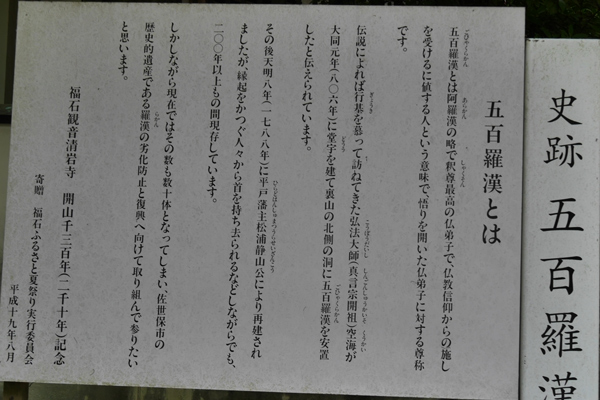 史跡 五百羅漢
五百羅漢とは
五百羅漢とは阿羅漢の略で釈尊最高の仏弟子で、仏教信仰からの施し
を受けるに値する人という意味で、悟りを開いた仏弟子に対する尊称
です。
伝説によれば行基を慕って訪ねてきた弘法大師(真言宗開祖)空海が
大同元年(八〇六年)に堂宇を建て裏山の北側の洞に五百羅漢を安置
したと伝えられています。
その後天明八年(一七八八年)に平戸藩主松浦静山公により再建され
ましたが、縁起をかつぐ人々から首を持ち去られるなどしながらでも、
二〇〇年以上もの間現存しています。
しかしながら現在ではその数も数十体となってしまい、佐世保市の
歴史的遺産である羅漢の劣化防止と復興へ向けて取り組んで参りたい
と思います。
福石観音清岩寺 開山千三百年(二千十年)記念
寄贈 福石ふるさと夏祭り実行委員会
平成十九年八月